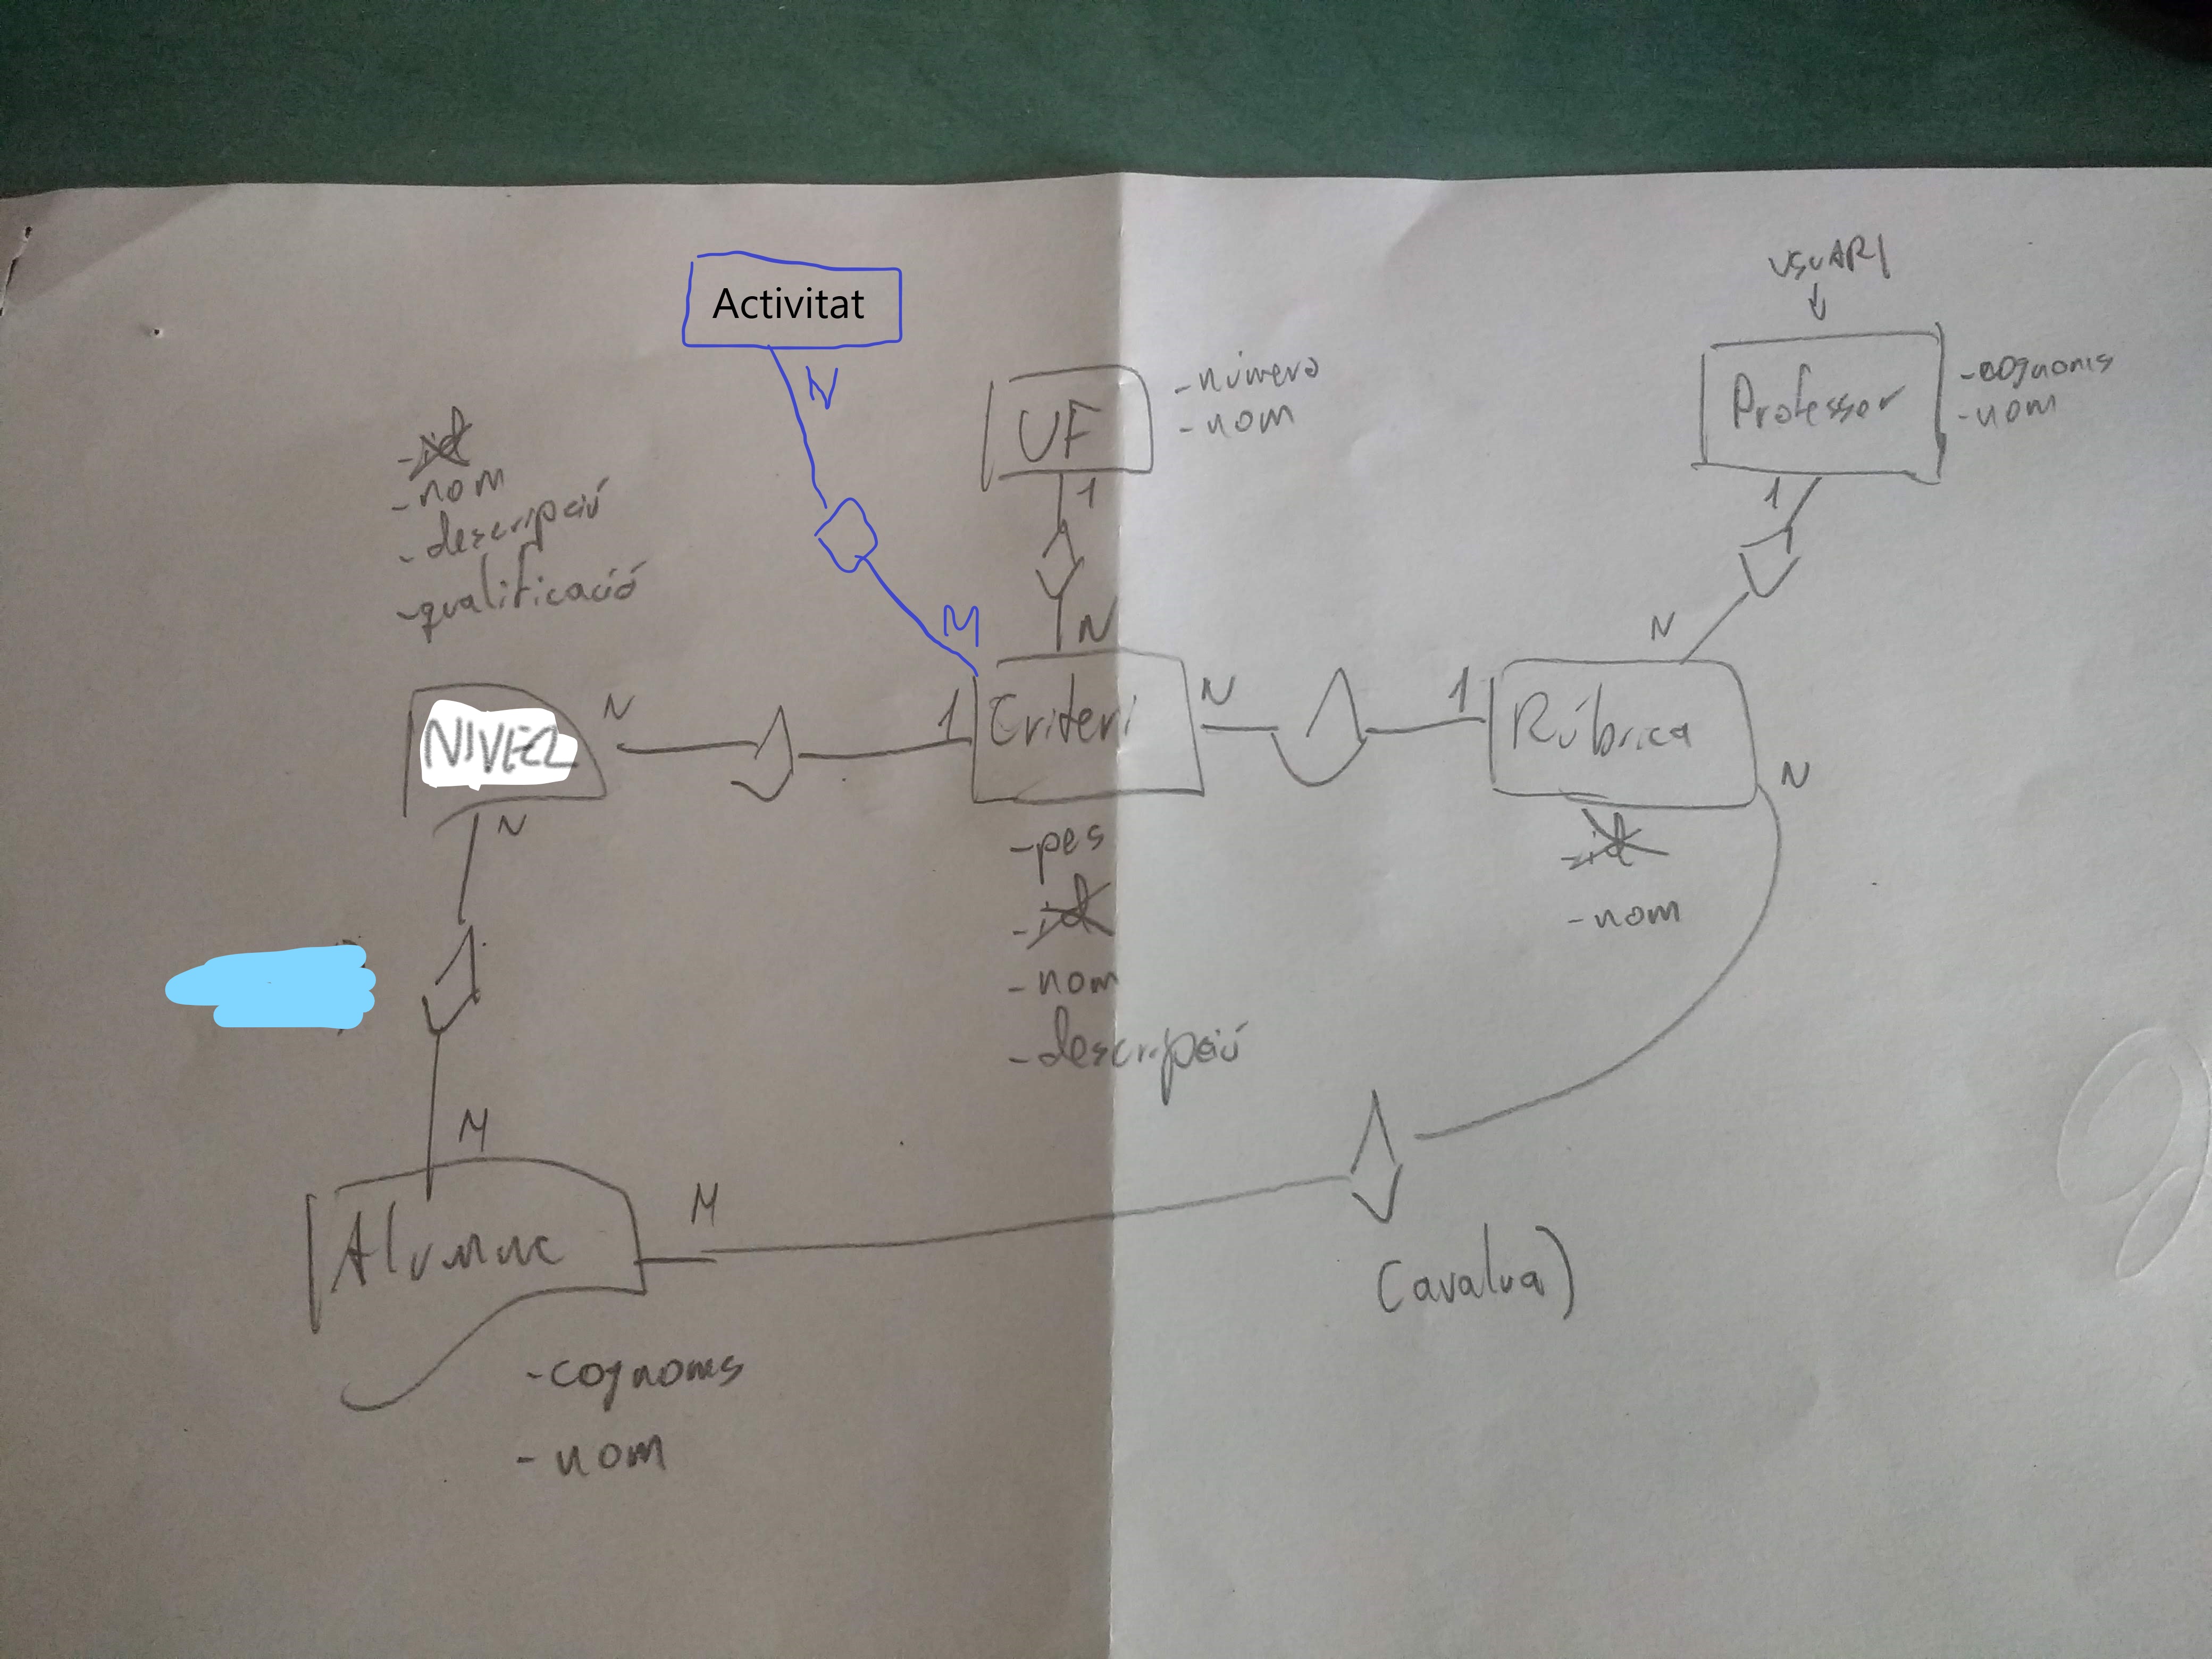 USUARI
Activitat
N
UF
- número
- nom
1
Professor
- cognoms
- nom
1
- nom
- descripció
- qualificació
M
N
N
NIVELL
N
1
Criteri
N
1
Rúbrica
N
N
- pes
- nom
- descripció
- nom
M
Alumne
M
(avalua)
- cognoms
- nom